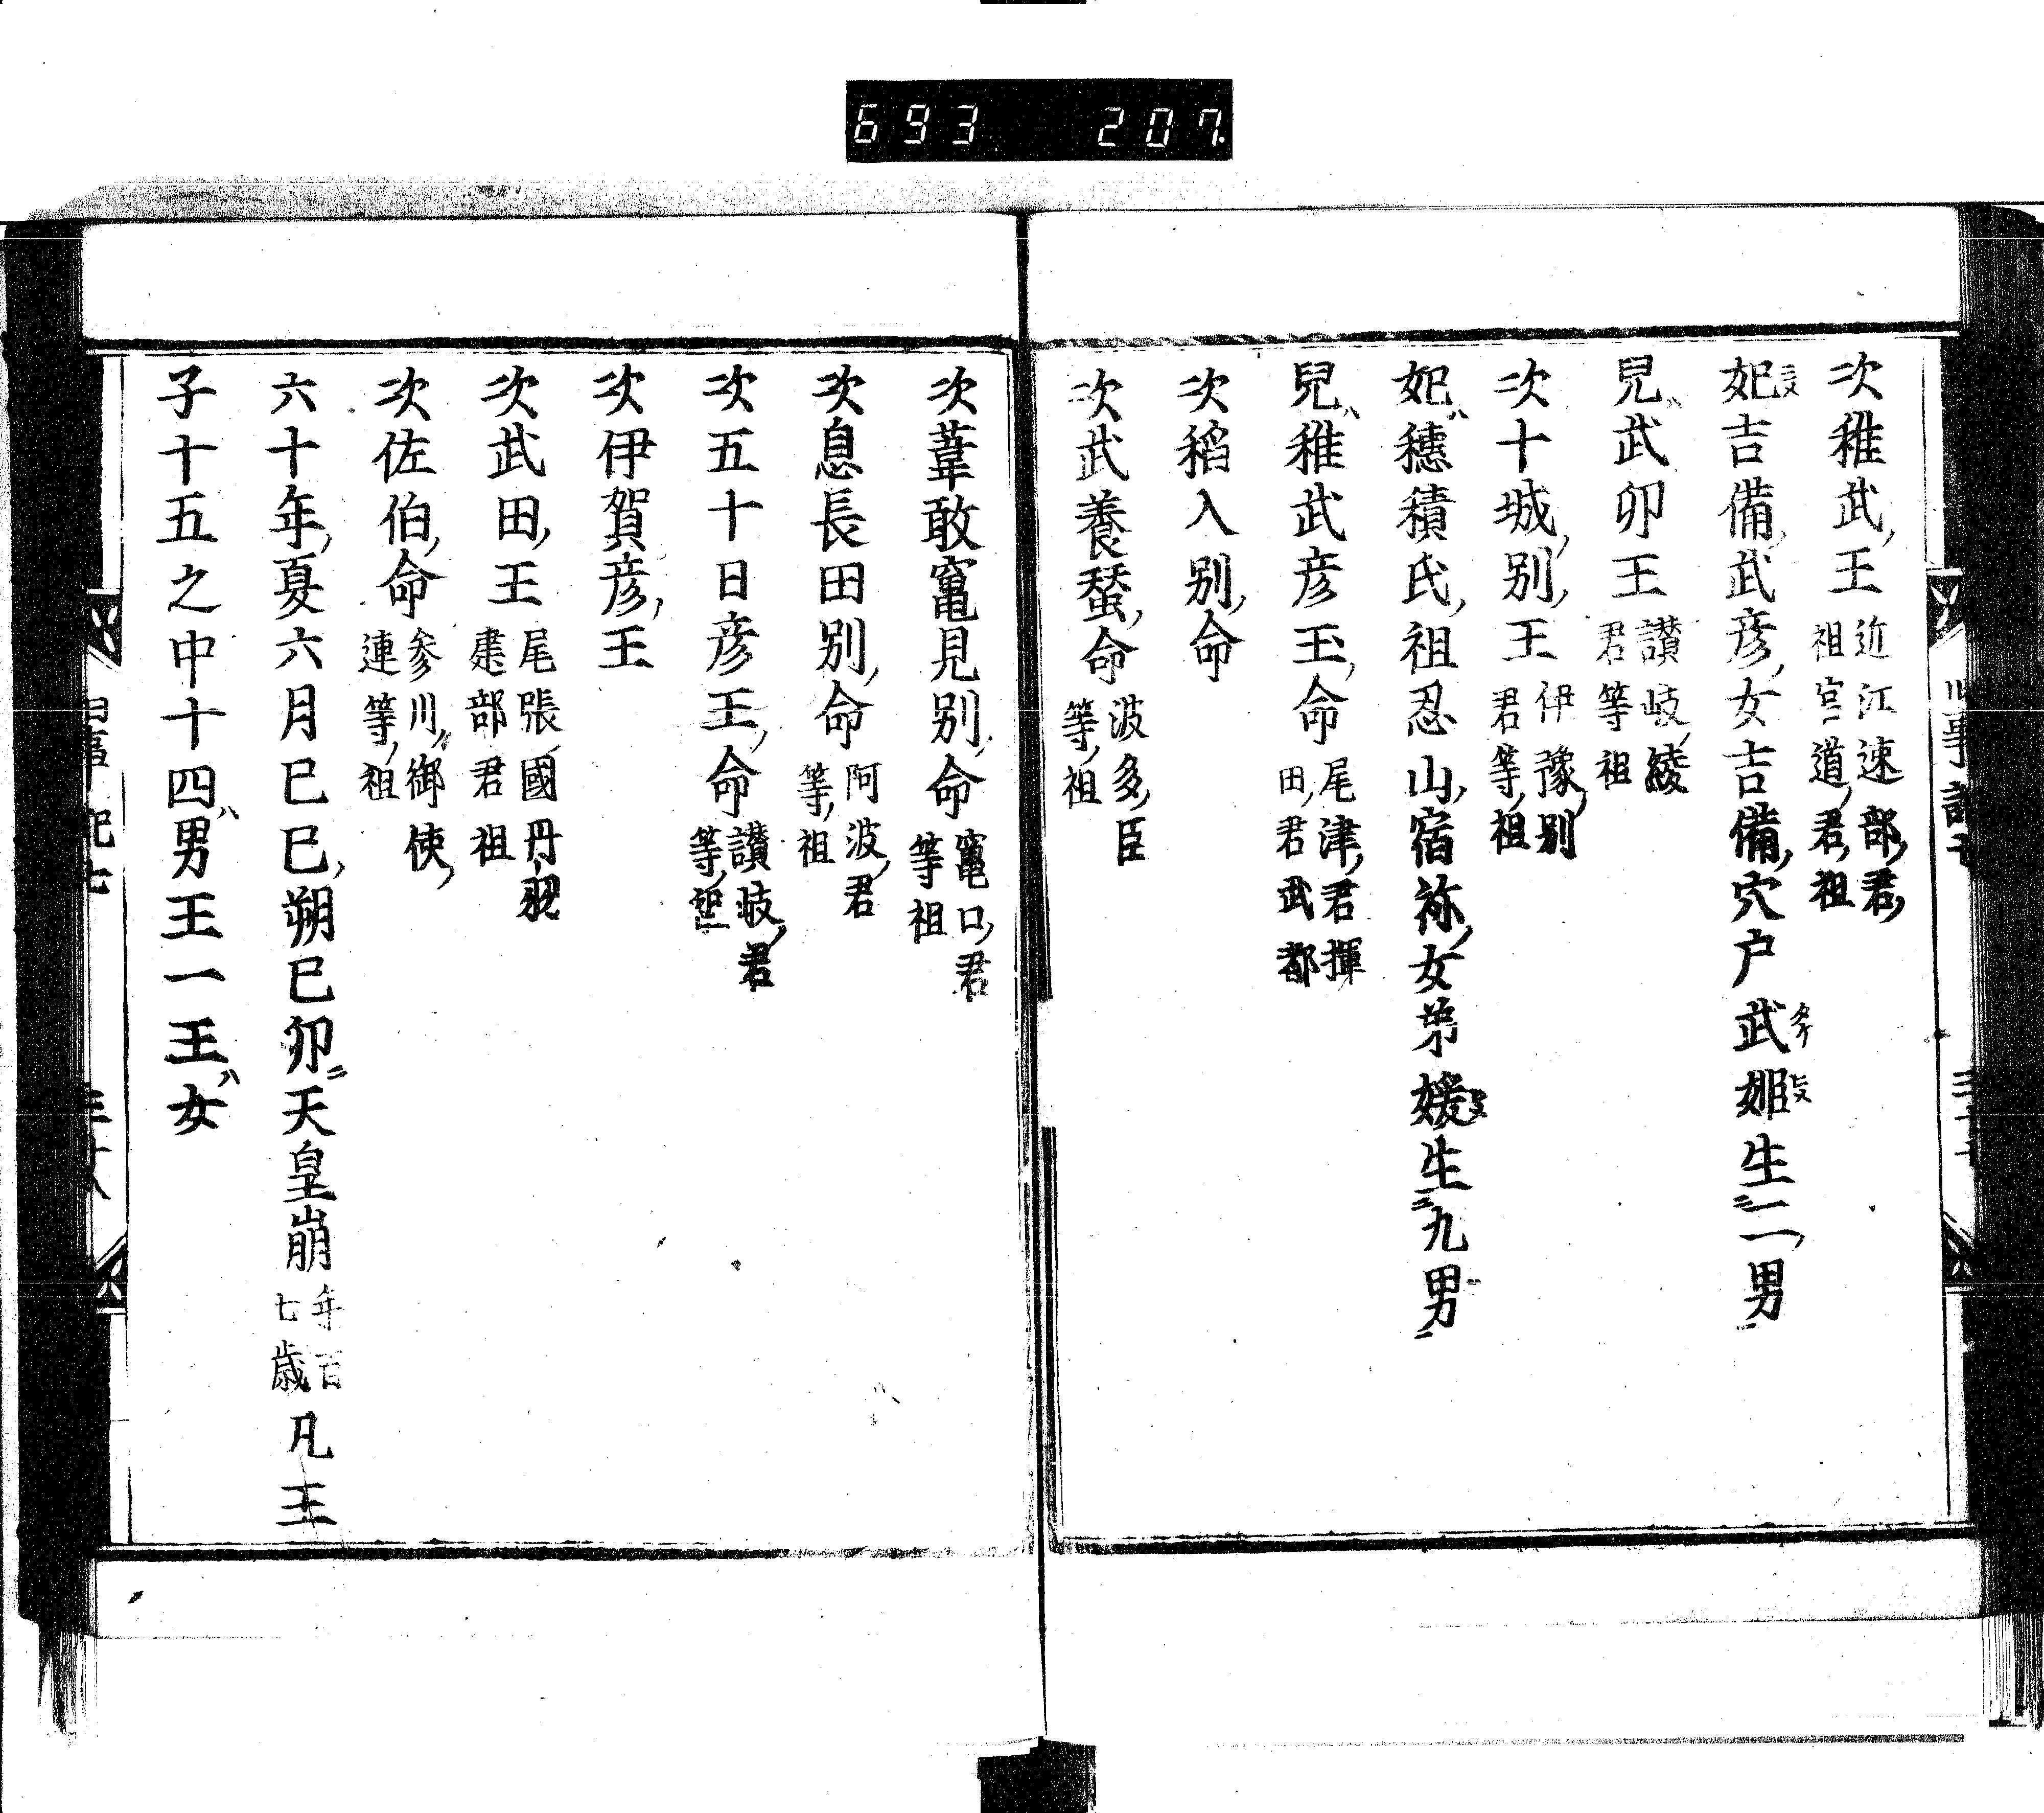 693 207
次稚武王近江速部君祖宮道君祖
妃吉備武彦女吉備穴戸武姫生二男
兒武卯王讃岐綾君等祖
次十城別王伊豫別君等祖
妃穗積氏祖忍山宿祢女弟媛生九男
兒稚武彦王命尾津君揮田君武部
次稻入別命
次武養蝅命波多臣等祖
次葦敢竃見別命竃口君等祖
次息長田別命阿波君等祖
次五十日彦王命讃岐君等祖
次伊賀彦王
次武田王尾張國丹羽建部君祖
次佐伯命参川御使連等祖
六十年夏六月巳巳朔巳卯天皇崩年百七歳凡王
子十五之中十四男王一王女